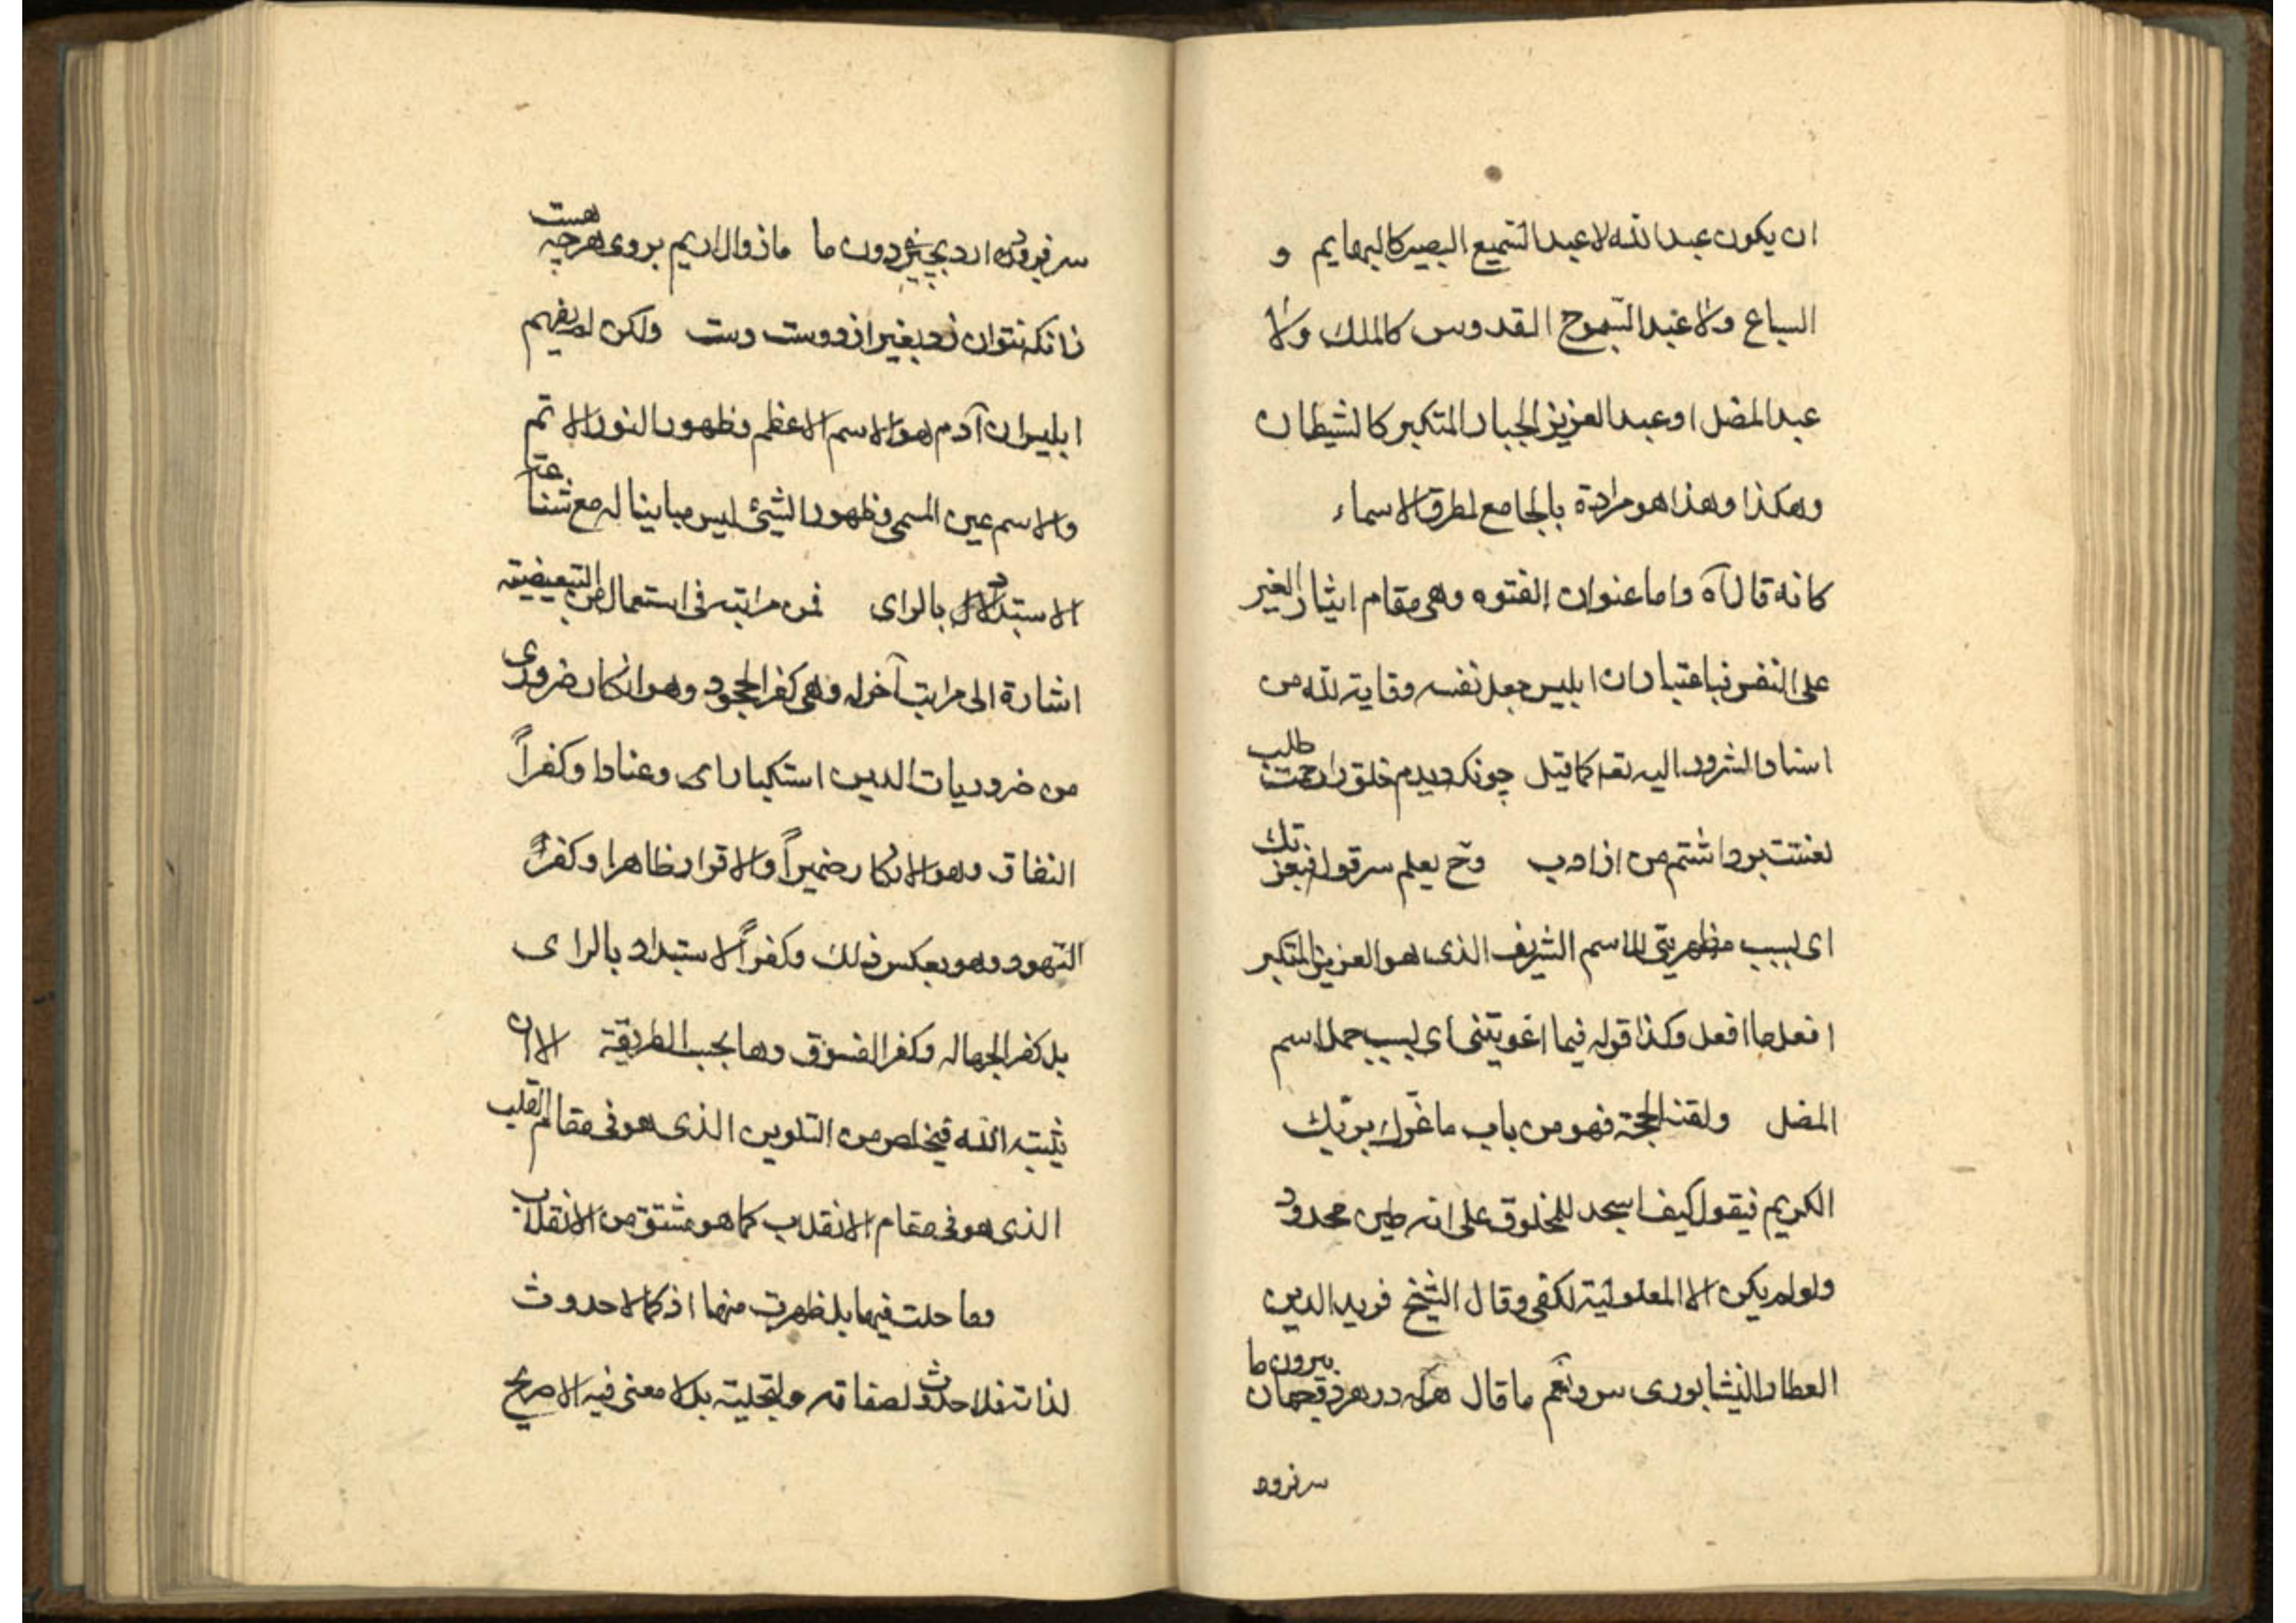 ان يكون عبد الله لا عبد السميع البصير كالبهايم و
السباع ولا عبد السبوح القدوس كالملك ولا
عبد المضل او عبد العزيز الجبار المتكبر كالشيطان
وهكذا وهذا هو مراده بالجامع لطرق الاسماء
كانه قال آه واما عنوان الفتوه وهى مقام ايثار الغير
على النفس فباعتبار ان ابليس جعل نفسه وقاية لله من
اسناد الشرور اليه تعـ كما قيل چونكه ديدم خلق را رحمت طلب
لعنتت برداشتم من از ادب وح يعلم سر قوله فبعزتك
اى بسبب مظهريتى للاسم الشريف الذى هو العزيز المتكبر
افعل ما افعل وكذا قوله فبما اغويتنى اى بسبب حمل اسم
المضل ولقنه الحجة فهو من باب ما غرك بربك
الكريم فيقول كيف اسجد للمخلوق على انه طين محدود
ولو لم يكن الا المعلولية لكفى وقال الشيخ فريد الدين
العطار النيشابورى س ونعم ما قال هركه در هر دو جهان بيرون ما
سر فرود
سر فرود ارد بچيزى دون ما ما زوال اريم بر وى هرچه هست
زانكه نتوان زد بغير از دوست دست ولكن لم يفهم
ابليس ان آدم هو الاسم الاعظم وظهور النور الاتم
والاسم عين المسمى وظهور الشيئ ليس مباينا له مع شناعة
الاستبداد بالراى فمن مراتبه فى استعمال من التبعيضية
اشارة الى مراتب آخر له وهى كفر الجحود وهو انكار ضرورى
من ضروريات الدين استكبارا وعنادا وكفراً
النفاق وهو الانكار ضميراً والاقرار ظاهرا وكفراً
التهود وهو بعكس ذلك وكفراً لاستبداد بالراى
بل كفر الجهاله وكفر الفسوق وهما بحسب الطريقة الا ان
يثبته الله فيخلص من التلوين الذى هو فى مقام القلب
الذى هو فى مقام الانقلاب كما هو مشتق من الانقلاب
وما حلت فيها بل ظهرت منها اذ كما لا حدوث
لذاته فلا حدوث لصفاته وتجليته بل لا معنى فيه الا صريح